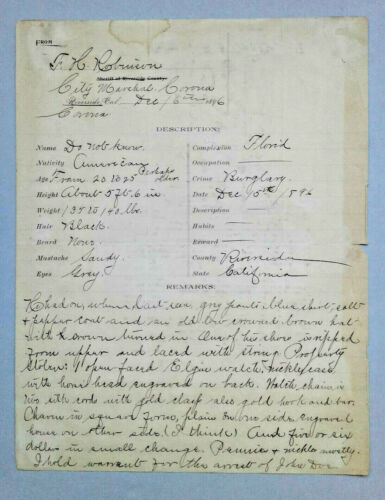 FROM
Fr. H. Robinson
Sheriff of Riverside County
City Marshal, Corona
Riverside, Cal Dec 6th 1896
Corona
DESCRIPTION:
Name Do not know. Complexion Florid
Nativity American Occupation
Age From 20 to 25 Perhaps older. Crime Burglary.
Height About 5 ft. 6 in Date Dec 5th 1896
Weight 137 to 140 lbs. Description
Hair Black. Habits
Beard None Reward
Mustache Sandy County Riverside
Eyes Grey State California
REMARKS:
He had on when last seen, grey pants, blue shirt, salt
& pepper coat and an old low crowned brown hat
with crown turned in One of his shoes is ripped
from upper and laced with string Property
Stolen: 1 open faced Elgin watch, nickle case
with horse head engraved on back. Watch chain is
two silk cords with gold clasp also gold hook and bar.
Charm in square form, plain on one side, engraved
horse on other side (I think) And five or six
dollars in small change. Pennies & nickles mostly.
I hold warrant for the arrest of John Doe